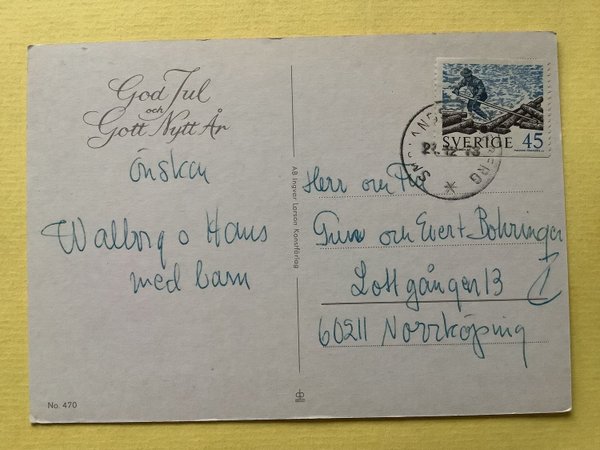 God Jul
och
Gott Nytt År
önskar
Walborg o Hans
med barn
No. 470
AB Ingvar Larson Konstförlag
SVERIGE 45
SMÅLANDS
Herr och Fru
Gun och Evert Bohringer
Lottgången 13
60211 Norrköping